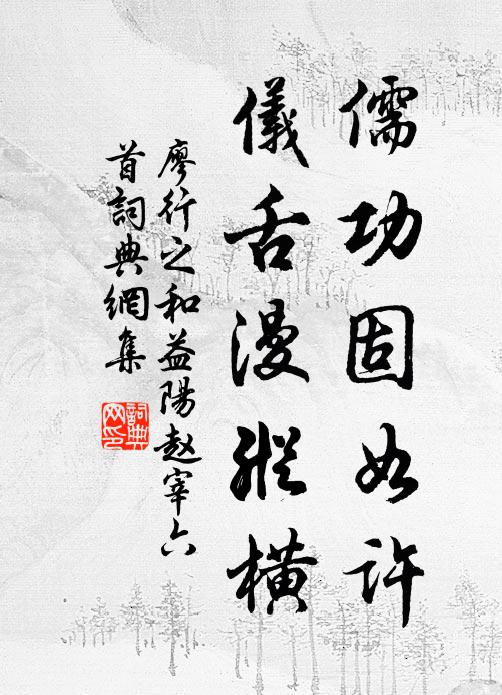 儒功固如許
儀舌漫縱橫
廖行之和益陽赵宰六
首詞典網集
詞典
网印